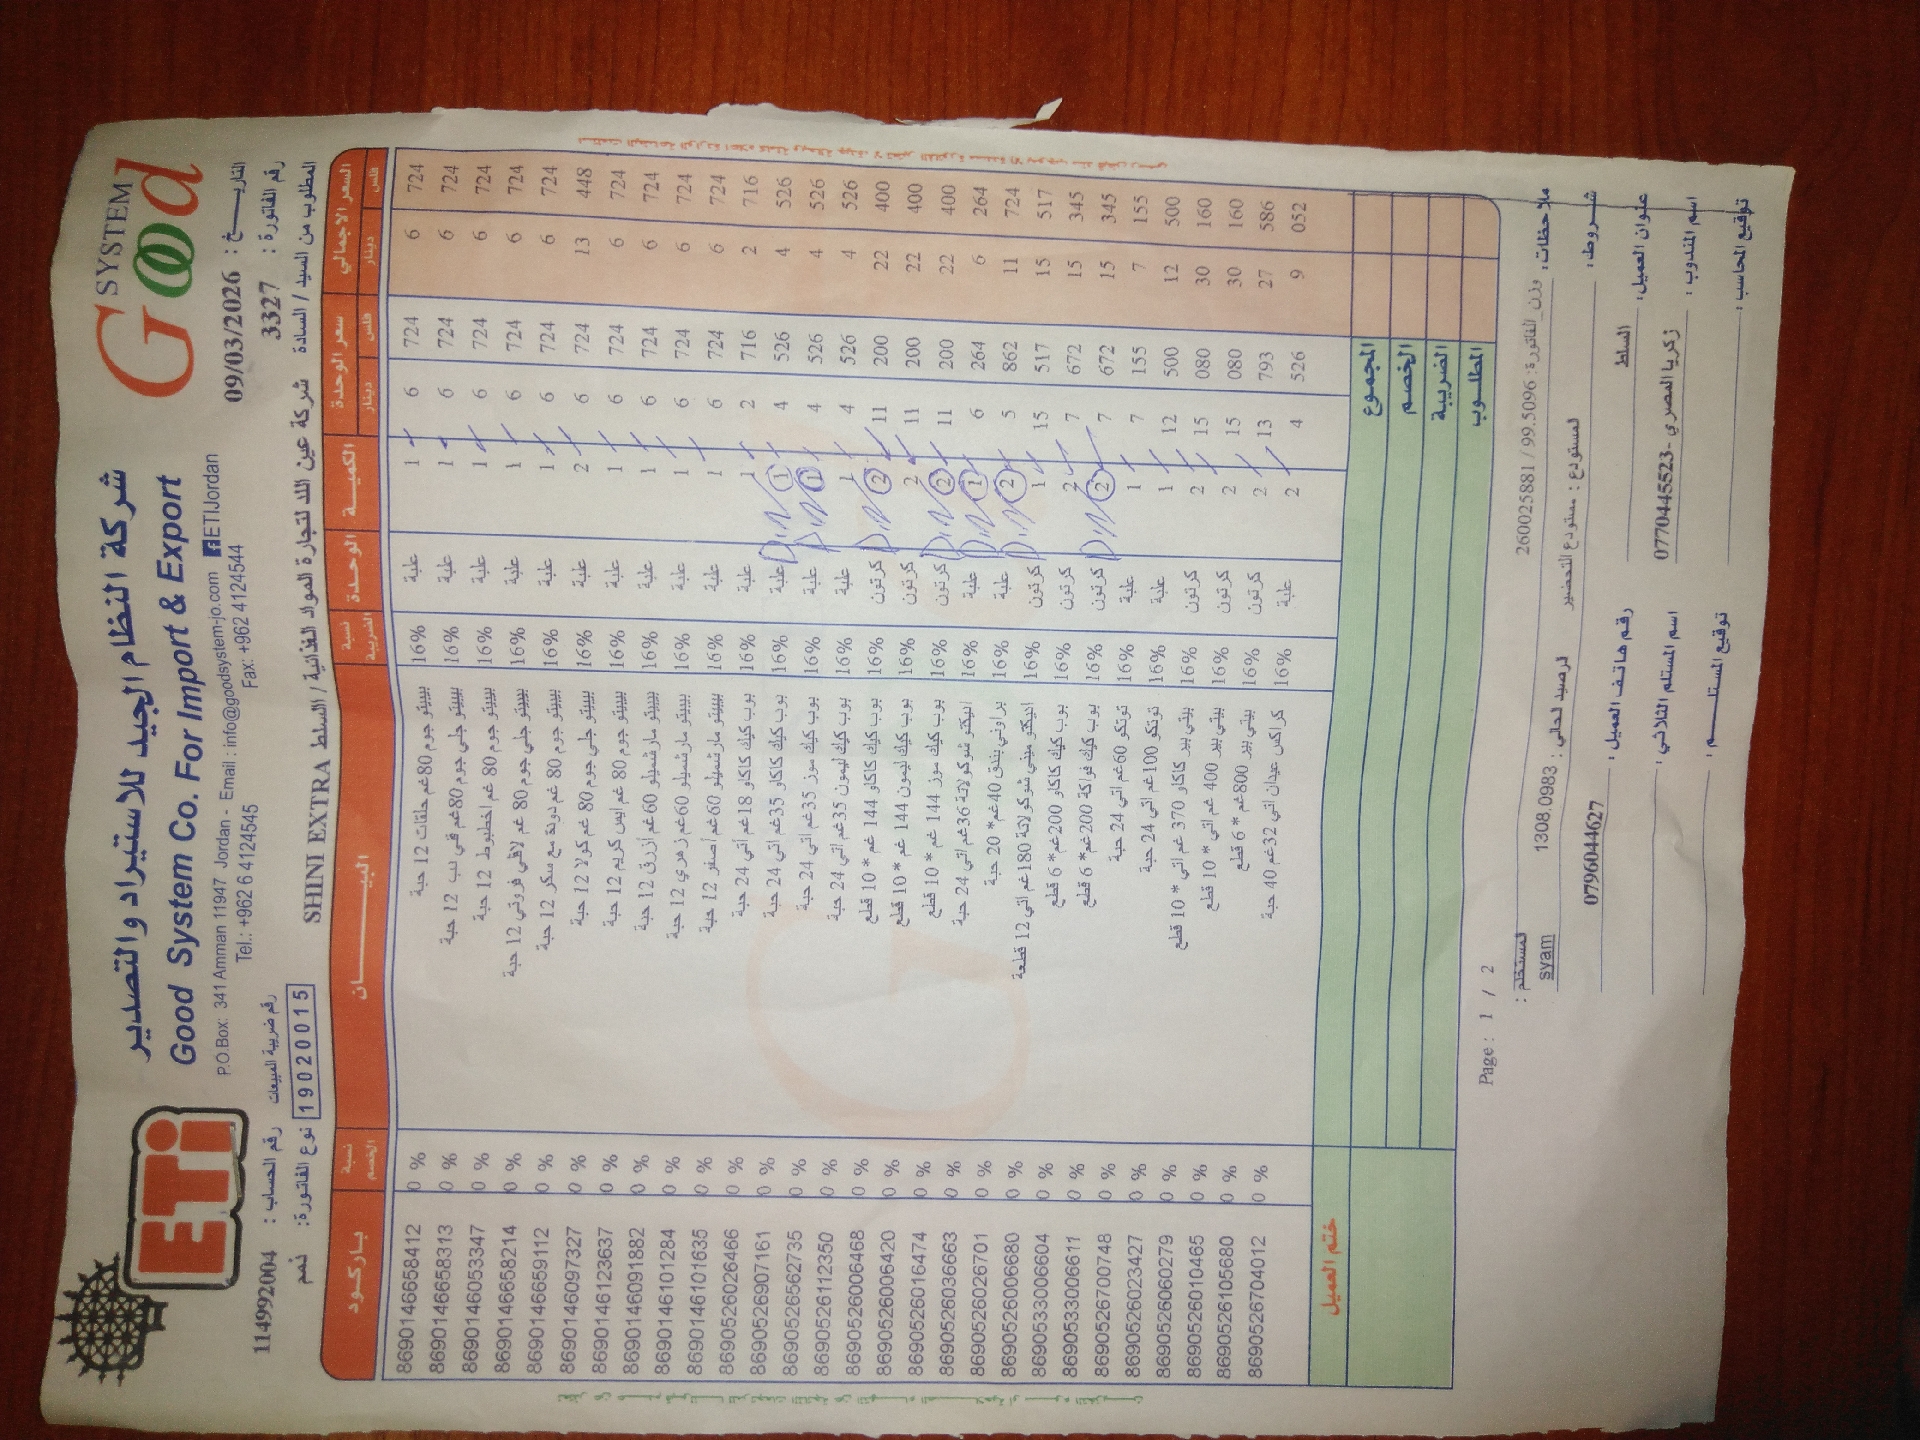 شركة النظام الجيد للاستيراد والتصدير
Good System Co. For Import & Export
P.O.Box: 341 Amman 11947 Jordan - Email : info@goodsystem-jo.com ETIJordan
Tel.: +962 6 4124545 Fax: +962 6 4124544
ETi
Good SYSTEM
التاريخ : 09/03/2026
رقم الفاتورة : 3327
رقم الحساب : 114992004
رقم ضريبة المبيعات
19020015
نوع الفاتورة: ذمم
المطلوب من السيد / السادة شركة عين اللد لتجارة المواد الغذائية / السلط SHINI EXTRA
باركود نسبة الخصم البيــــان نسبة الضريبة الوحدة الكميـة سعر الوحدة دينار فلس السعر الاجمالي دينار فلس
8690146658412 0 % بيبيتو جوم 80غم حلقات 12 حبة 16% علبة 1 6 724 6 724
8690146658313 0 % بيبيتو جلي جوم 80غم في دب 12 حبة 16% علبة 1 6 724 6 724
8690146053347 0 % بيبيتو جوم 80 غم اخطبوط 12 حبة 16% علبة 1 6 724 6 724
8690146658214 0 % بيبيتو جلي جوم 80 غم لافلي فروتي 12 حبة 16% علبة 1 6 724 6 724
8690146659112 0 % بيبيتو جوم 80 غم دودة مع سكر 12 حبة 16% علبة 1 6 724 6 724
8690146097327 0 % بيبيتو جلي جوم 80 غم كولا 12 حبة 16% علبة 2 6 724 13 448
8690146123637 0 % بيبيتو جوم 80 غم ايس كريم 12 حبة 16% علبة 1 6 724 6 724
8690146091882 0 % بيبيتو مارشميلو 60غم أزرق 12 حبة 16% علبة 1 6 724 6 724
8690146101284 0 % بيبيتو مارشميلو 60غم زهري 12 حبة 16% علبة 1 6 724 6 724
8690146101635 0 % بيبيتو مارشميلو 60غم أصفر 12 حبة 16% علبة 1 6 724 6 724
8690526026466 0 % بوب كيك كاكاو 18غم اتي 24 حبة 16% علبة 1 2 716 2 716
8690526907161 0 % بوب كيك كاكاو 35غم اتي 24 حبة 16% علبة 1 4 526 4 526
8690526562735 0 % بوب كيك موز 35غم اتي 24 حبة 16% علبة 1 4 526 4 526
8690526112350 0 % بوب كيك ليمون 35غم اتي 24 حبة 16% علبة 1 4 526 4 526
8690526006468 0 % بوب كيك كاكاو 144 غم * 10 قطع 16% كرتون 2 11 200 22 400
8690526006420 0 % بوب كيك ليمون 144 غم * 10 قطع 16% كرتون 2 11 200 22 400
8690526016474 0 % بوب كيك موز 144 غم * 10 قطع 16% كرتون 2 11 200 22 400
8690526036663 0 % اديكتو شوكولاتة 36غم اتي 24 حبة 16% علبة 1 6 264 6 264
8690526026701 0 % براوني بندق 40غم * 20 حبة 16% علبة 2 5 862 11 724
8690526006680 0 % اديكتو ميني شوكولاتة 180غم اتي 12 قطعة 16% كرتون 1 15 517 15 517
8690533006604 0 % بوب كيك كاكاو 200غم* 6 قطع 16% كرتون 2 7 672 15 345
8690533006611 0 % بوب كيك فراكة 200غم* 6 قطع 16% كرتون 2 7 672 15 345
8690526700748 0 % توتكو 60غم اتي 24 حبة 16% علبة 1 7 155 7 155
8690526023427 0 % توتكو 100غم اتي 24 حبة 16% علبة 1 12 500 12 500
8690526060279 0 % بيتي بير كاكاو 370 غم اتي * 10 قطع 16% كرتون 2 15 080 30 160
8690526010465 0 % بيتي بير 400 غم اتي * 10 قطع 16% كرتون 2 15 080 30 160
8690526105680 0 % بيتي بير 800غم * 6 قطع 16% كرتون 2 13 793 27 586
8690526704012 0 % كراكس عيدان اتي 32غم 40 حبة 16% علبة 2 4 526 9 052
ختم العميل
المجموع
الخصم
الضريبة
المطلوب
Page : 1 / 2
ملاحظات: وزن_الفاتورة: 99.5096 / 260025881
المستخدم : syam
شروط: المستودع : مستودع التحضير الرصيد الحالي : 1308.0983
عنوان العميل: السلط
رقم هاتف العميل: 0796044627
اسم المندوب: زكريا المصري -0770445523
اسم المستلم الثلاثي:
توقيع المحاسب:
توقيع المستلـــم :